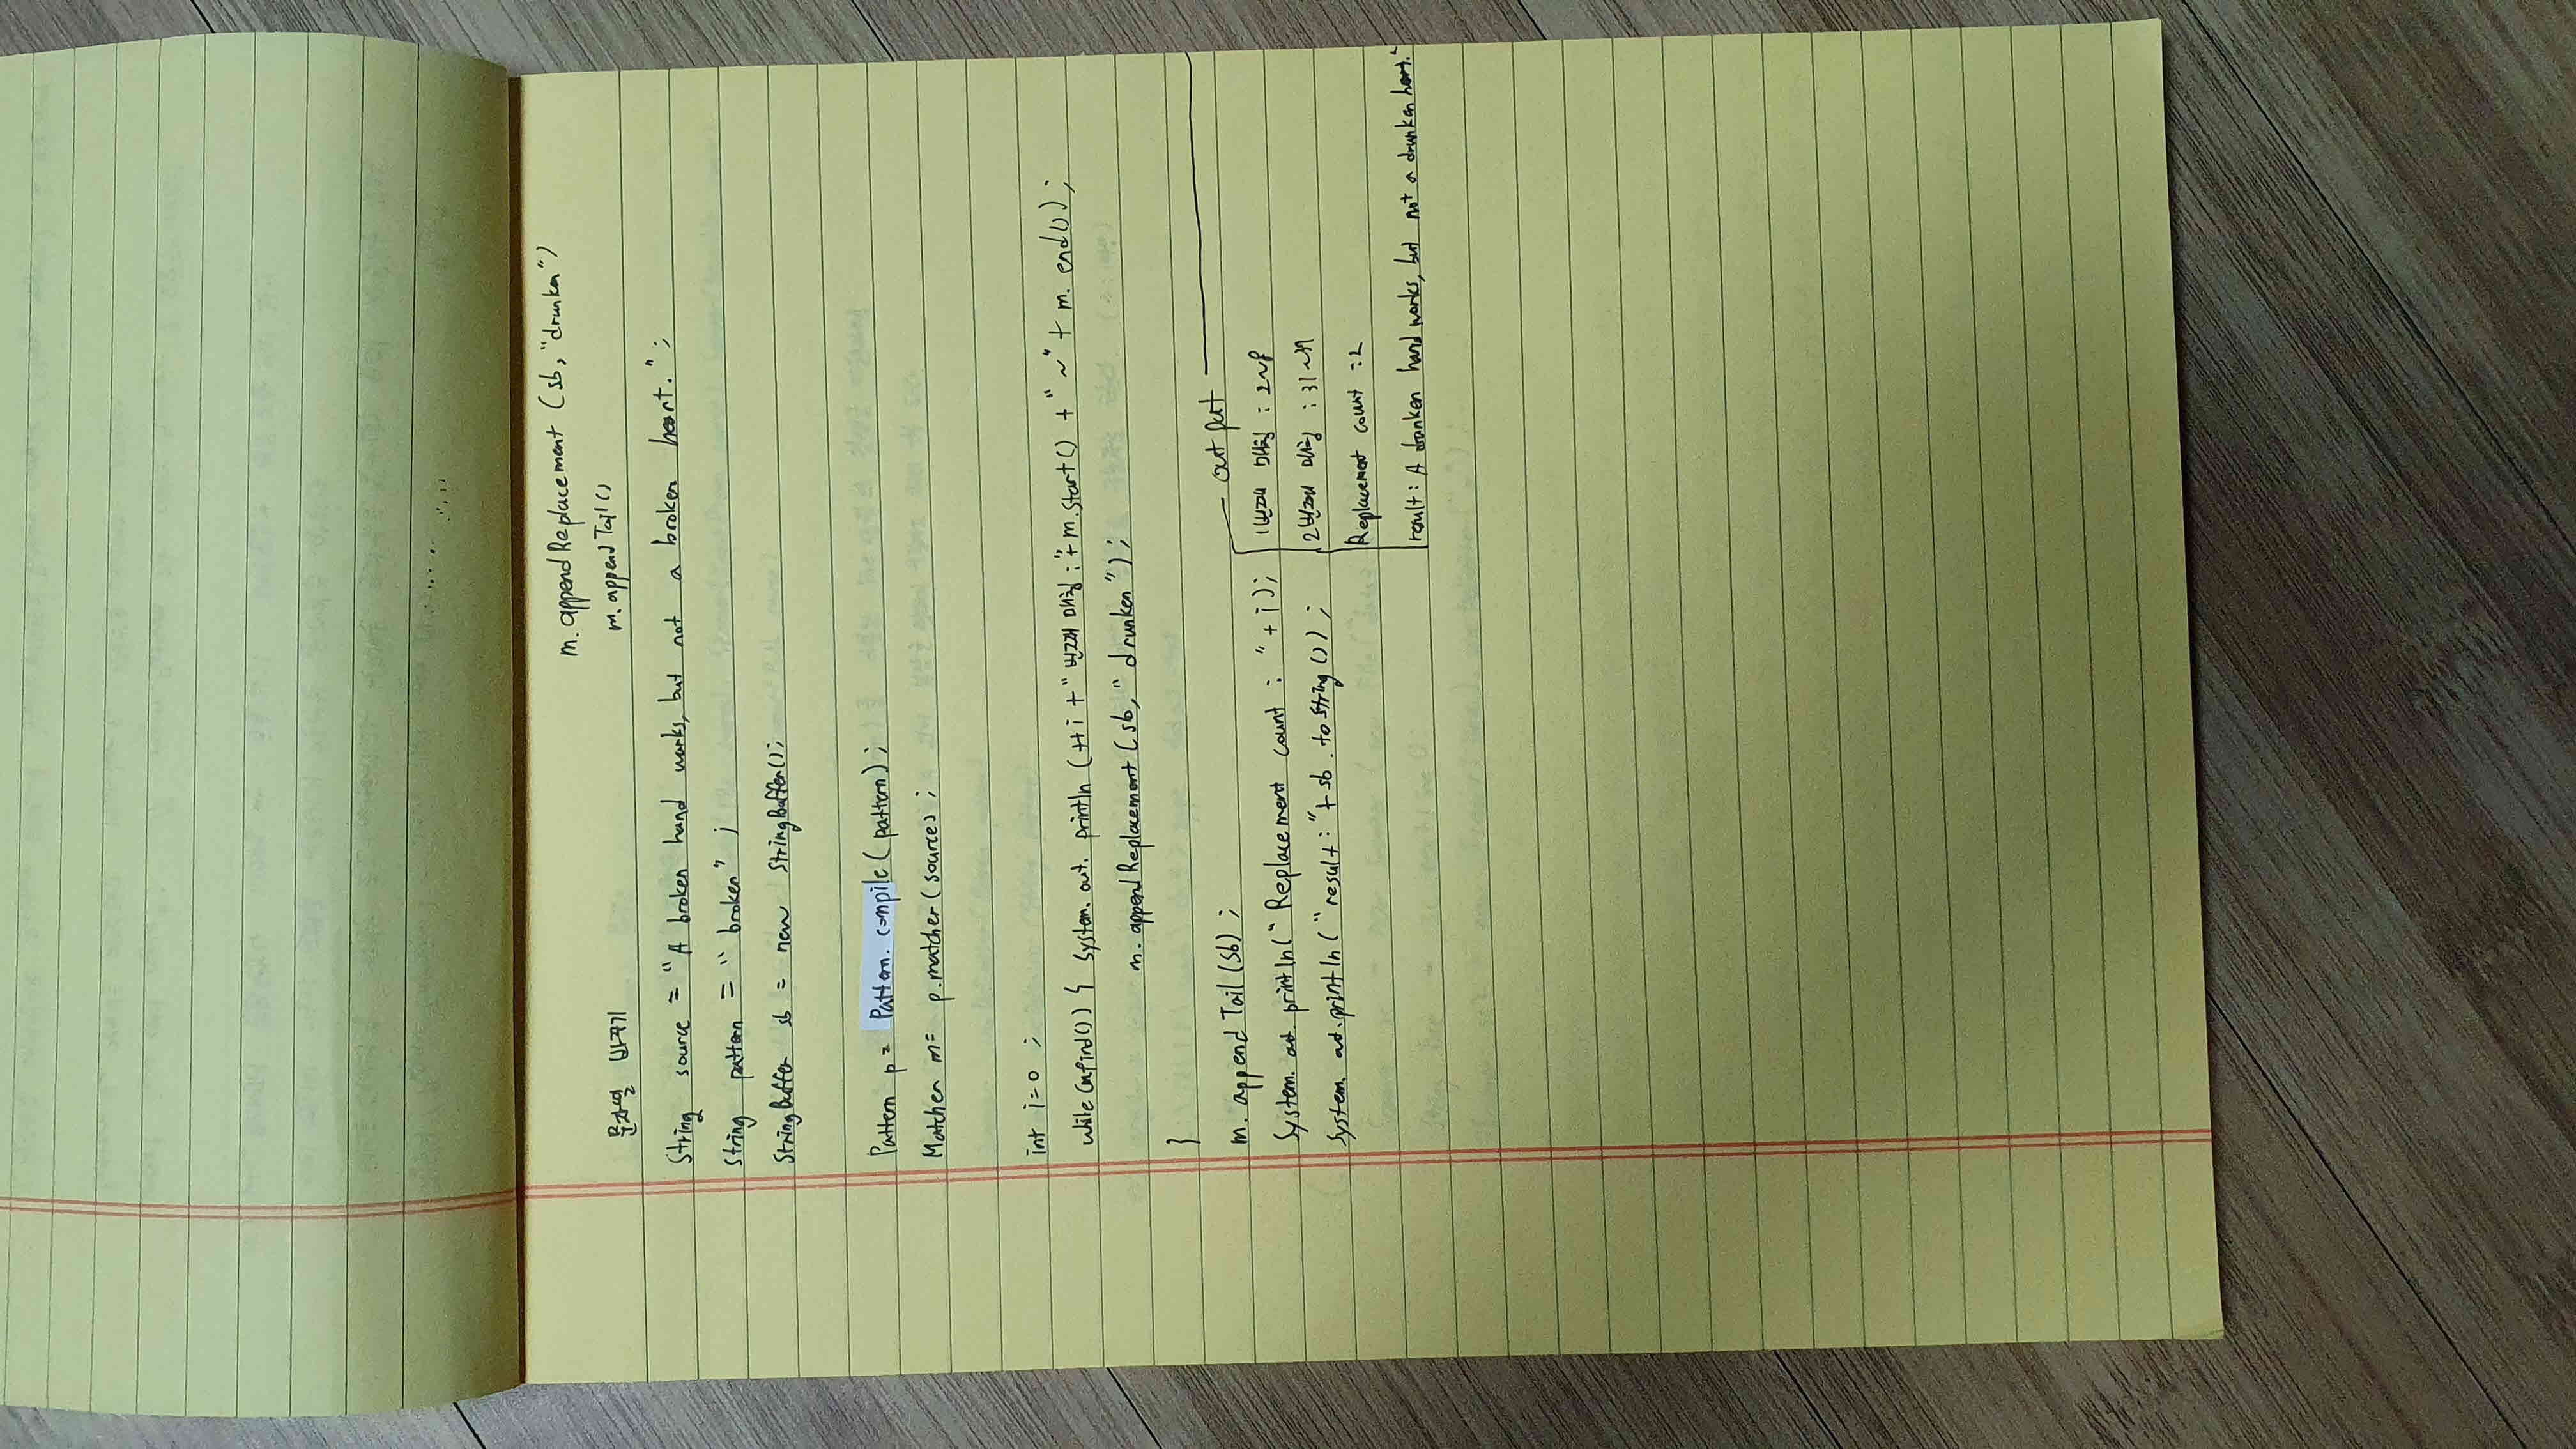 m. appendReplacement (sb, "drunken")
m. appendTail()
문자열 바꾸기
String source = "A broken hand works, but not a broken heart." ;
String pattern = "broken" ;
StringBuffer sb = new StringBuffer();
Pattern p = Pattern. compile ( pattern) ;
Matcher m = p.matcher (source) ;
int i=0 ;
while (m.find()) { System. out. println (++i + " 번째 매칭 : "+ m.start() + " ~" + m. end()) ;
m. appendReplacement ( sb, " drunken ") ;
}
m. append Tail (sb) ;
System. out. println(" Replacement count : " + i) ;
System. out.println ( "result : "+ sb . toString ()) ;
output
1번째 매칭 : 2~8
2번째 매칭 : 31~37
Replacement count : 2
result : A drunken hand works, but not a drunken heart."